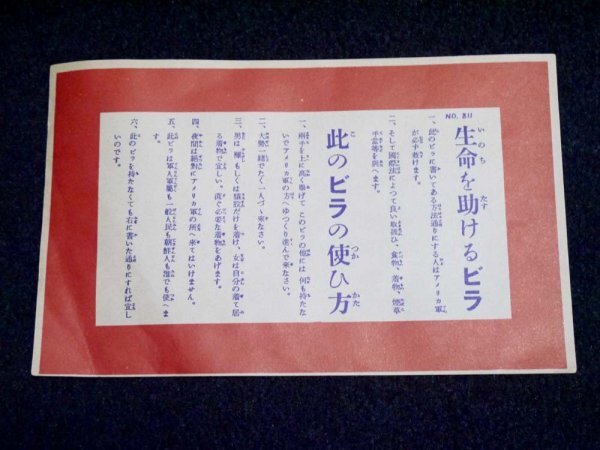 NO. 811
生命を助けるビラ
一、此のビラに書いてある方法通りにする人はアメリカ軍
が必ず救けます。
二、そして國際法によつて良い取扱ひ、食物、着物、煙草
手當等を與へます。
此のビラの使ひ方
一、兩手を上に高く擧げて このビラの他には 何も持たな
いでアメリカ軍の方へゆつくり進んで來なさい。
二、大勢一緒でなく一人づゝ來なさい。
三、男は褌もしくは猿股だけを着け、女は自分の着て居
る着物で宜しい。直ぐ必要な着物をあげます。
四、夜間は絶對にアメリカ軍の所へ來てはいけません。
五、此ビラは軍人軍屬も一般人民も朝鮮人も誰でも使へま
す。
六、此のビラを持たなくても右に書いた通りにすれば宜し
いのです。